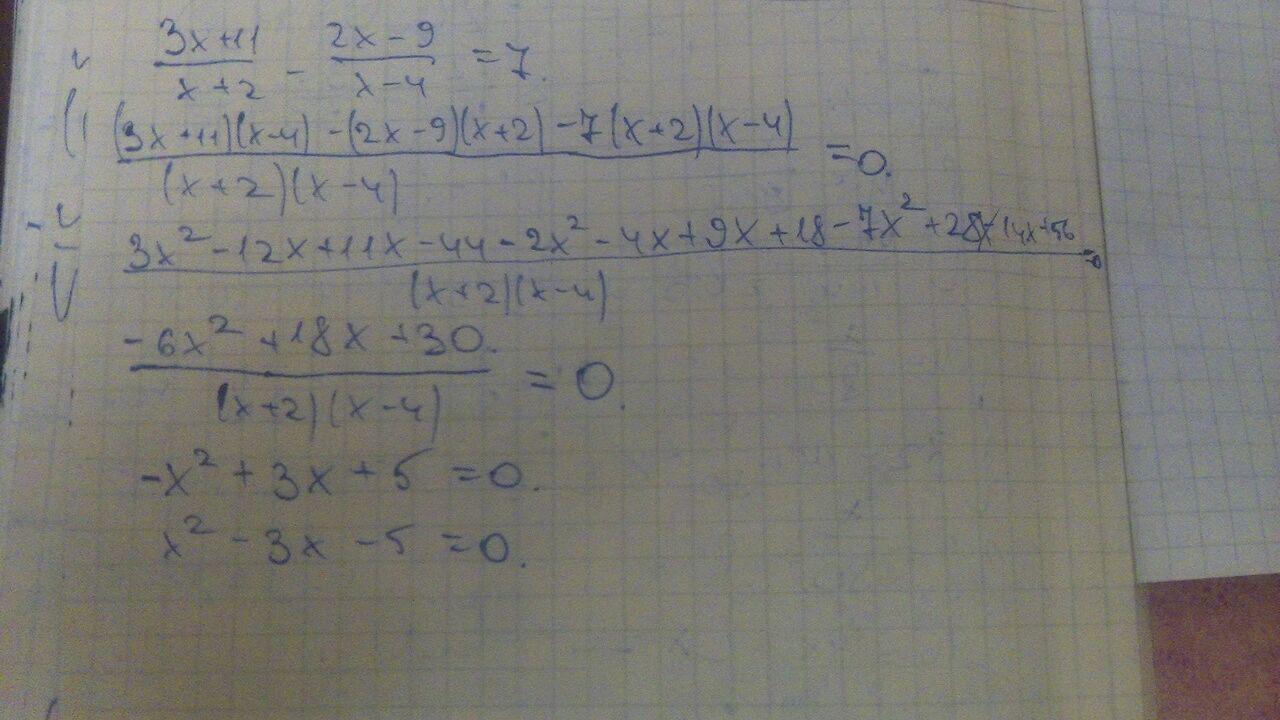 (3x+11)/(x+2) - (2x-9)/(x-4) = 7.
((3x+11)(x-4) - (2x-9)(x+2) - 7(x+2)(x-4))/((x+2)(x-4)) = 0.
(3x² - 12x + 11x - 44 - 2x² - 4x + 9x + 18 - 7x² + 28x - 14x + 56)/((x+2)(x-4)) = 0
(-6x² + 18x + 30.)/((x+2)(x-4)) = 0.
-x² + 3x + 5 = 0.
x² - 3x - 5 = 0.